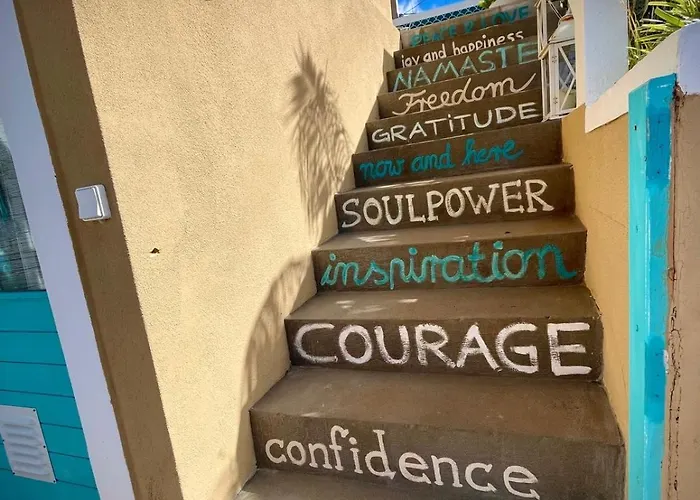 PEACE & LOVE
joy and happiness
NAMASTE
Freedom
GRATiTUDE
now and here
SOULPOWER
inspiration
COURAGE
confidence